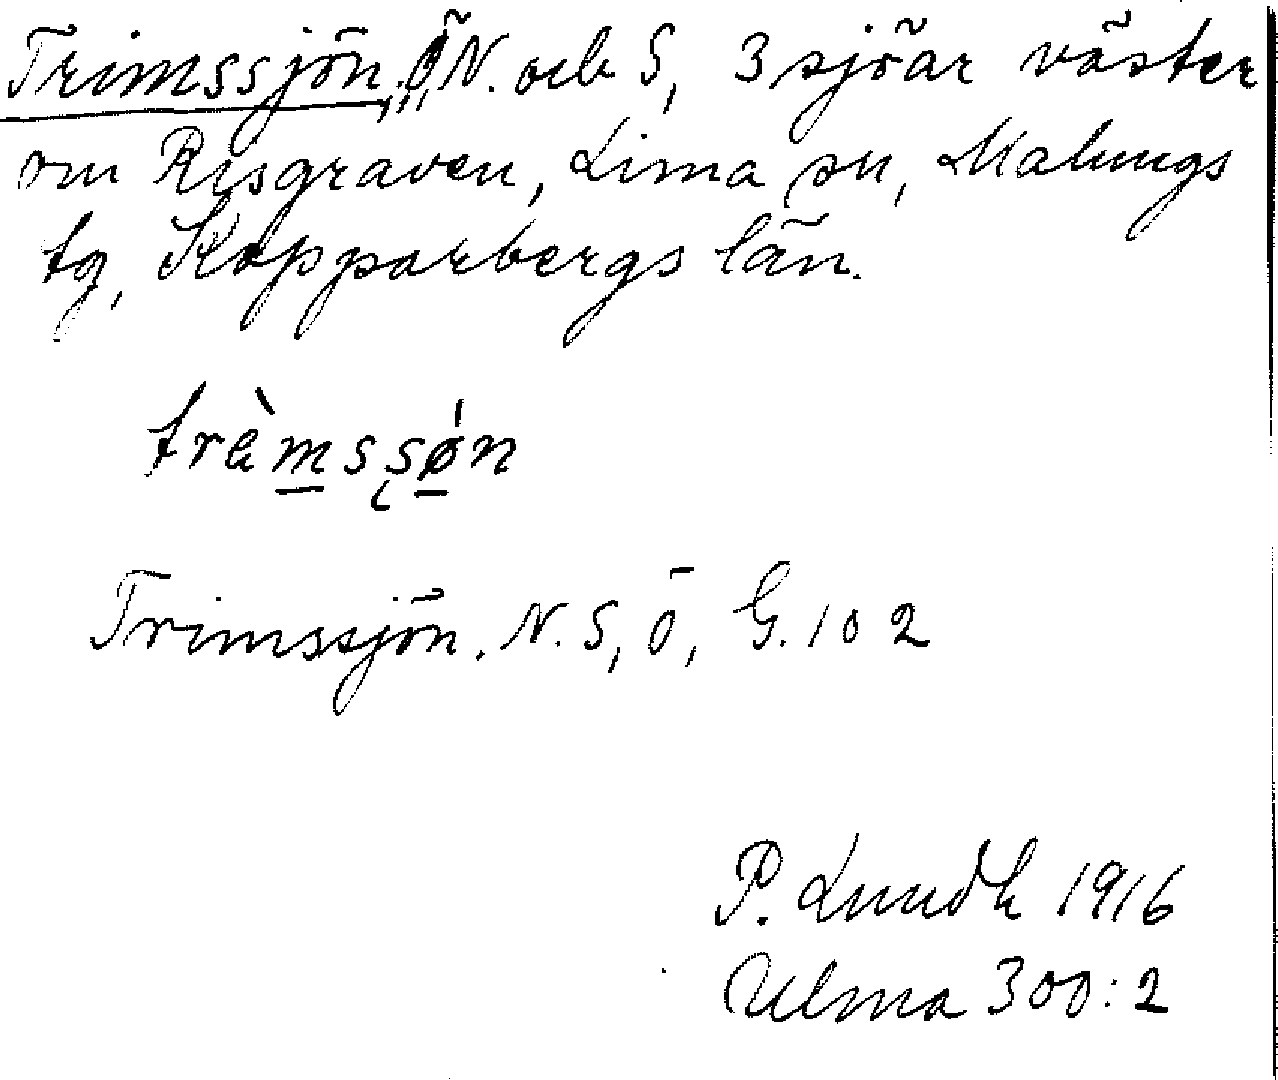 Trimssjön, Ö, N. och S, 3 sjöar väster
om Risgraven, Lima sn, Malungs
tg, Kopparbergs län.
trèmssø̀n
Trimssjön. N. S, Ö, G. 102
P. Lundh 1916
Ulma 300:2